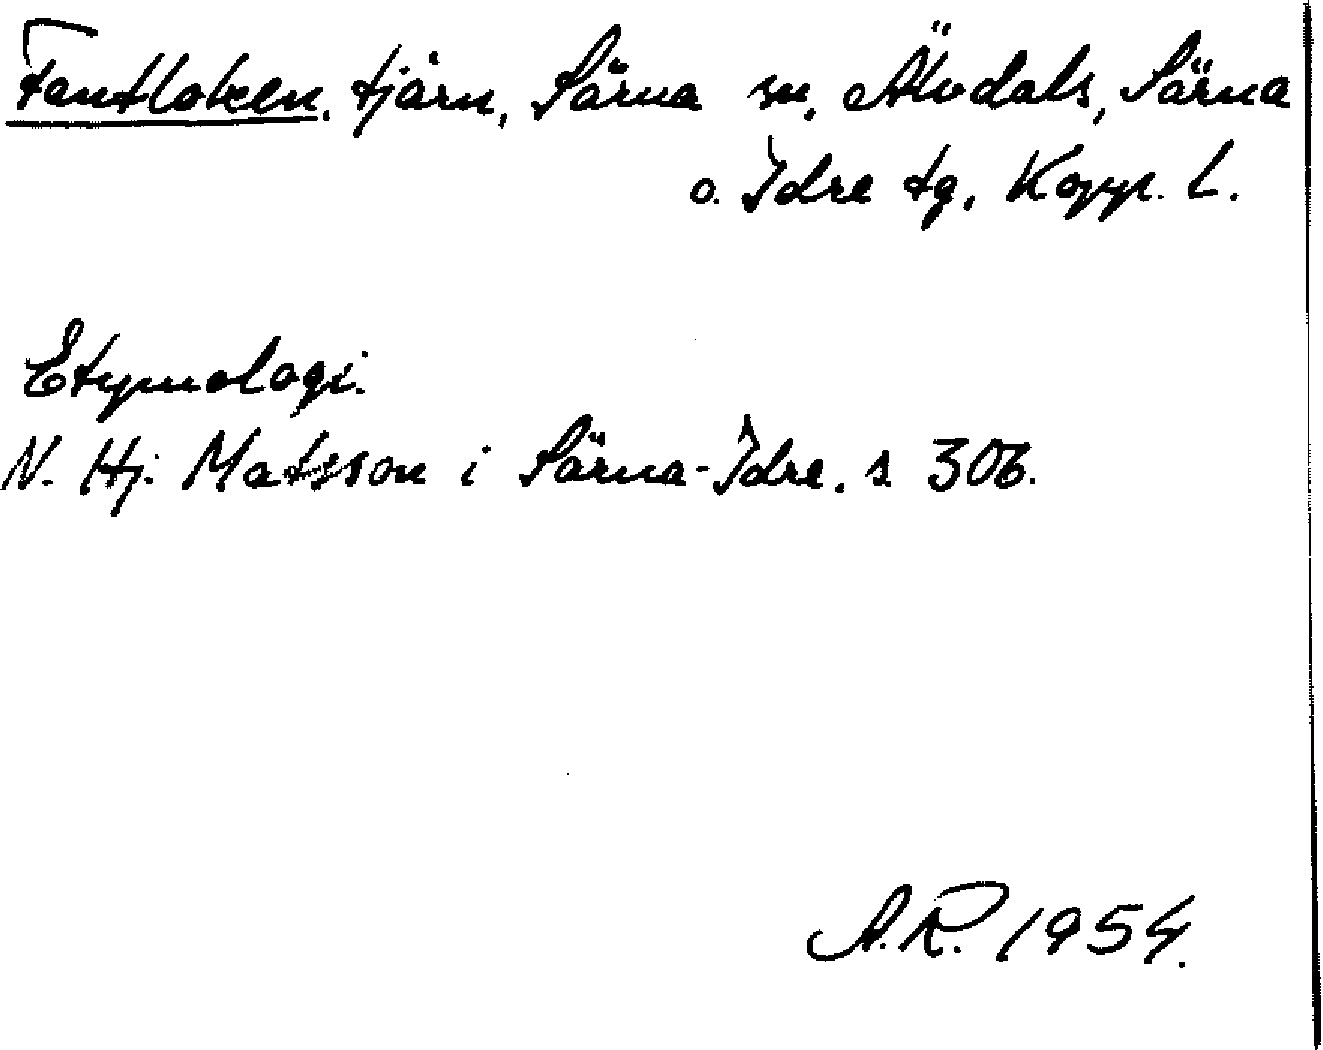 Fanthoken, tjärn, Särna sn, Älvdals, Särna
o. Idre tg, Kopp. L.
Etymologi.
N. Hj. Matsson i Särna-Idre. s 306.
A.R. 1954.